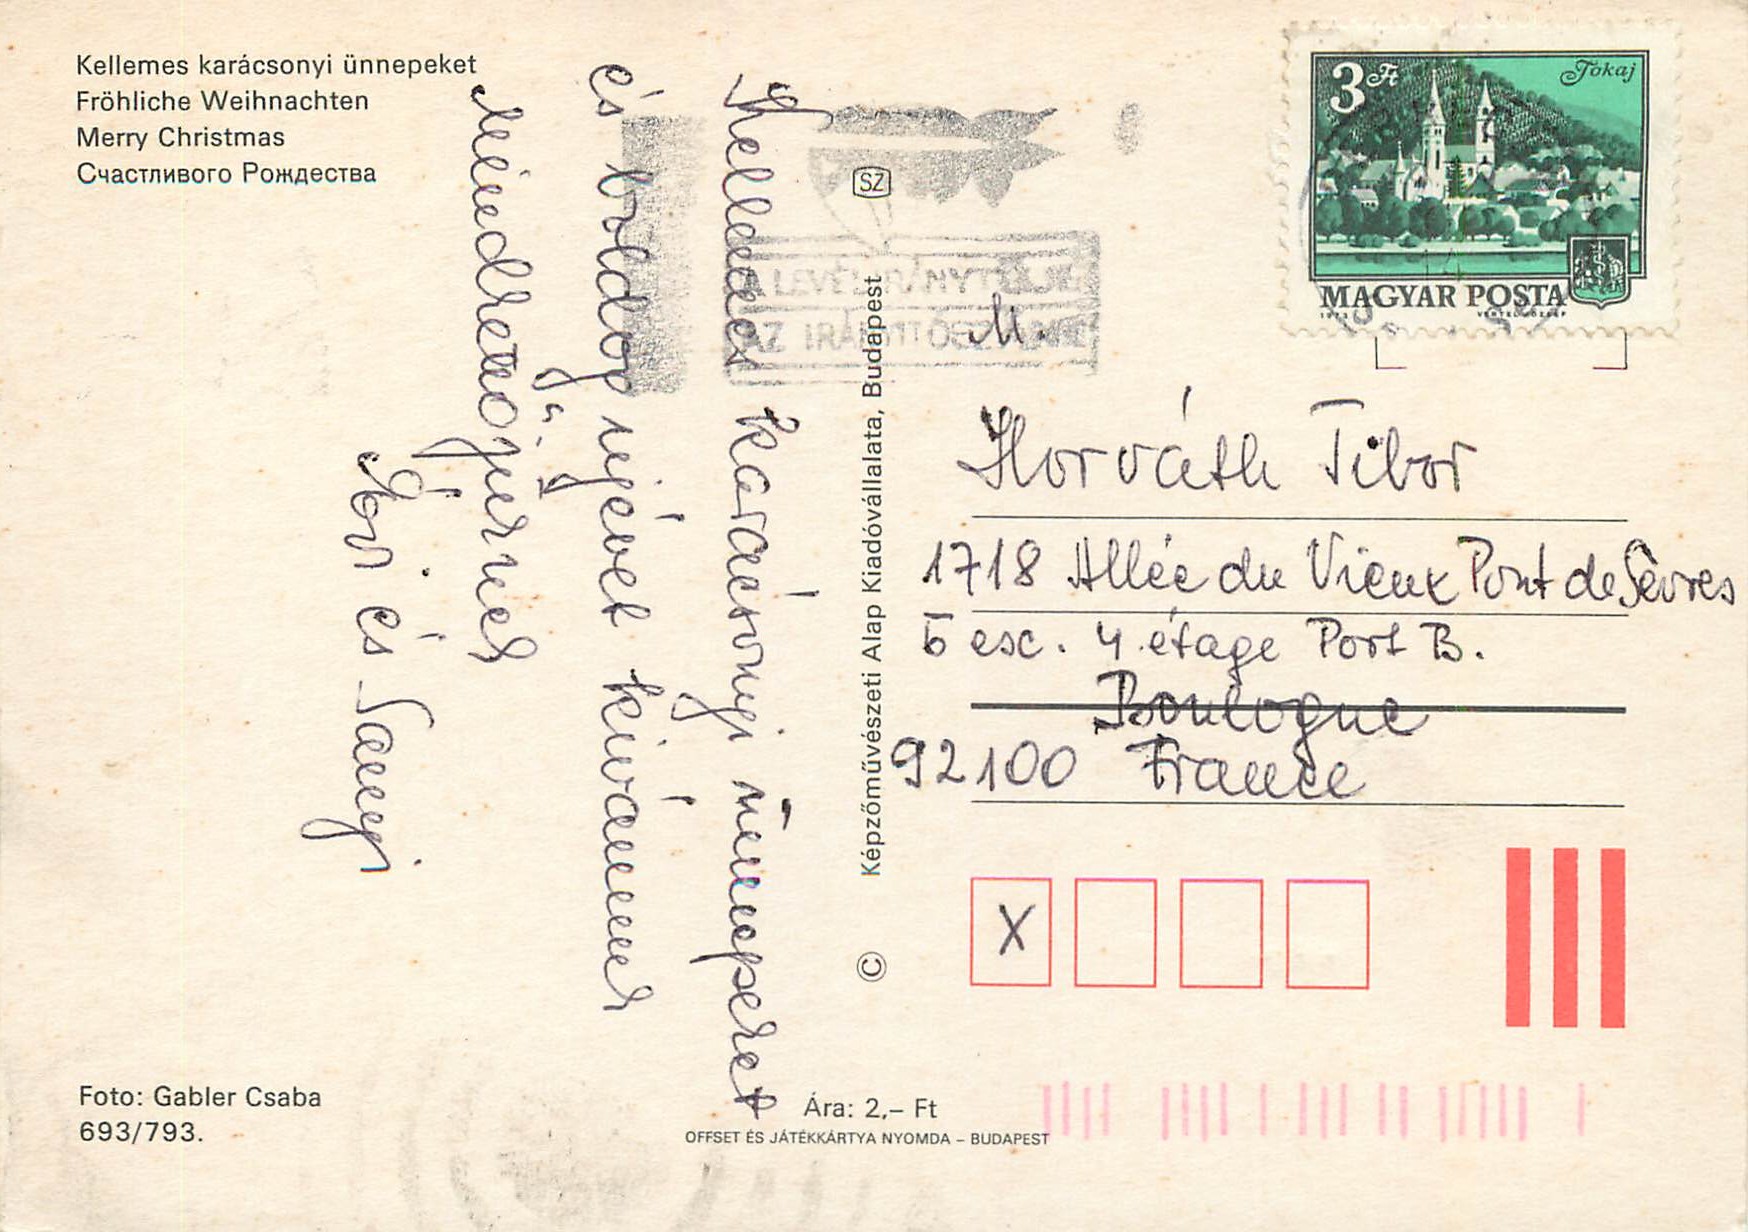 Kellemes karácsonyi ünnepeket
Fröhliche Weihnachten
Merry Christmas
Счастливого Рождества
Kellemes karácsonyi ünnepeket
és boldog újévet kívánunk
Mindketőjuknek
és Sanyi
SZ
Képzőművészeti Alap Kiadóvállalata, Budapest
©
3 Ft
Tokaj
MAGYAR POSTA
1973 VERTEL JÓZSEF
A LEVÉL IRÁNYTŰJE
AZ IRÁNYÍTÓSZÁM
M.
Horváth Tibor
1718 Allée du Vieux Pont de Sèvres
5 esc. 4 étage Port B.
Boulogne
92100 France
X
Foto: Gabler Csaba
693/793.
Ára: 2,– Ft
OFFSET ÉS JÁTÉKKÁRTYA NYOMDA – BUDAPEST